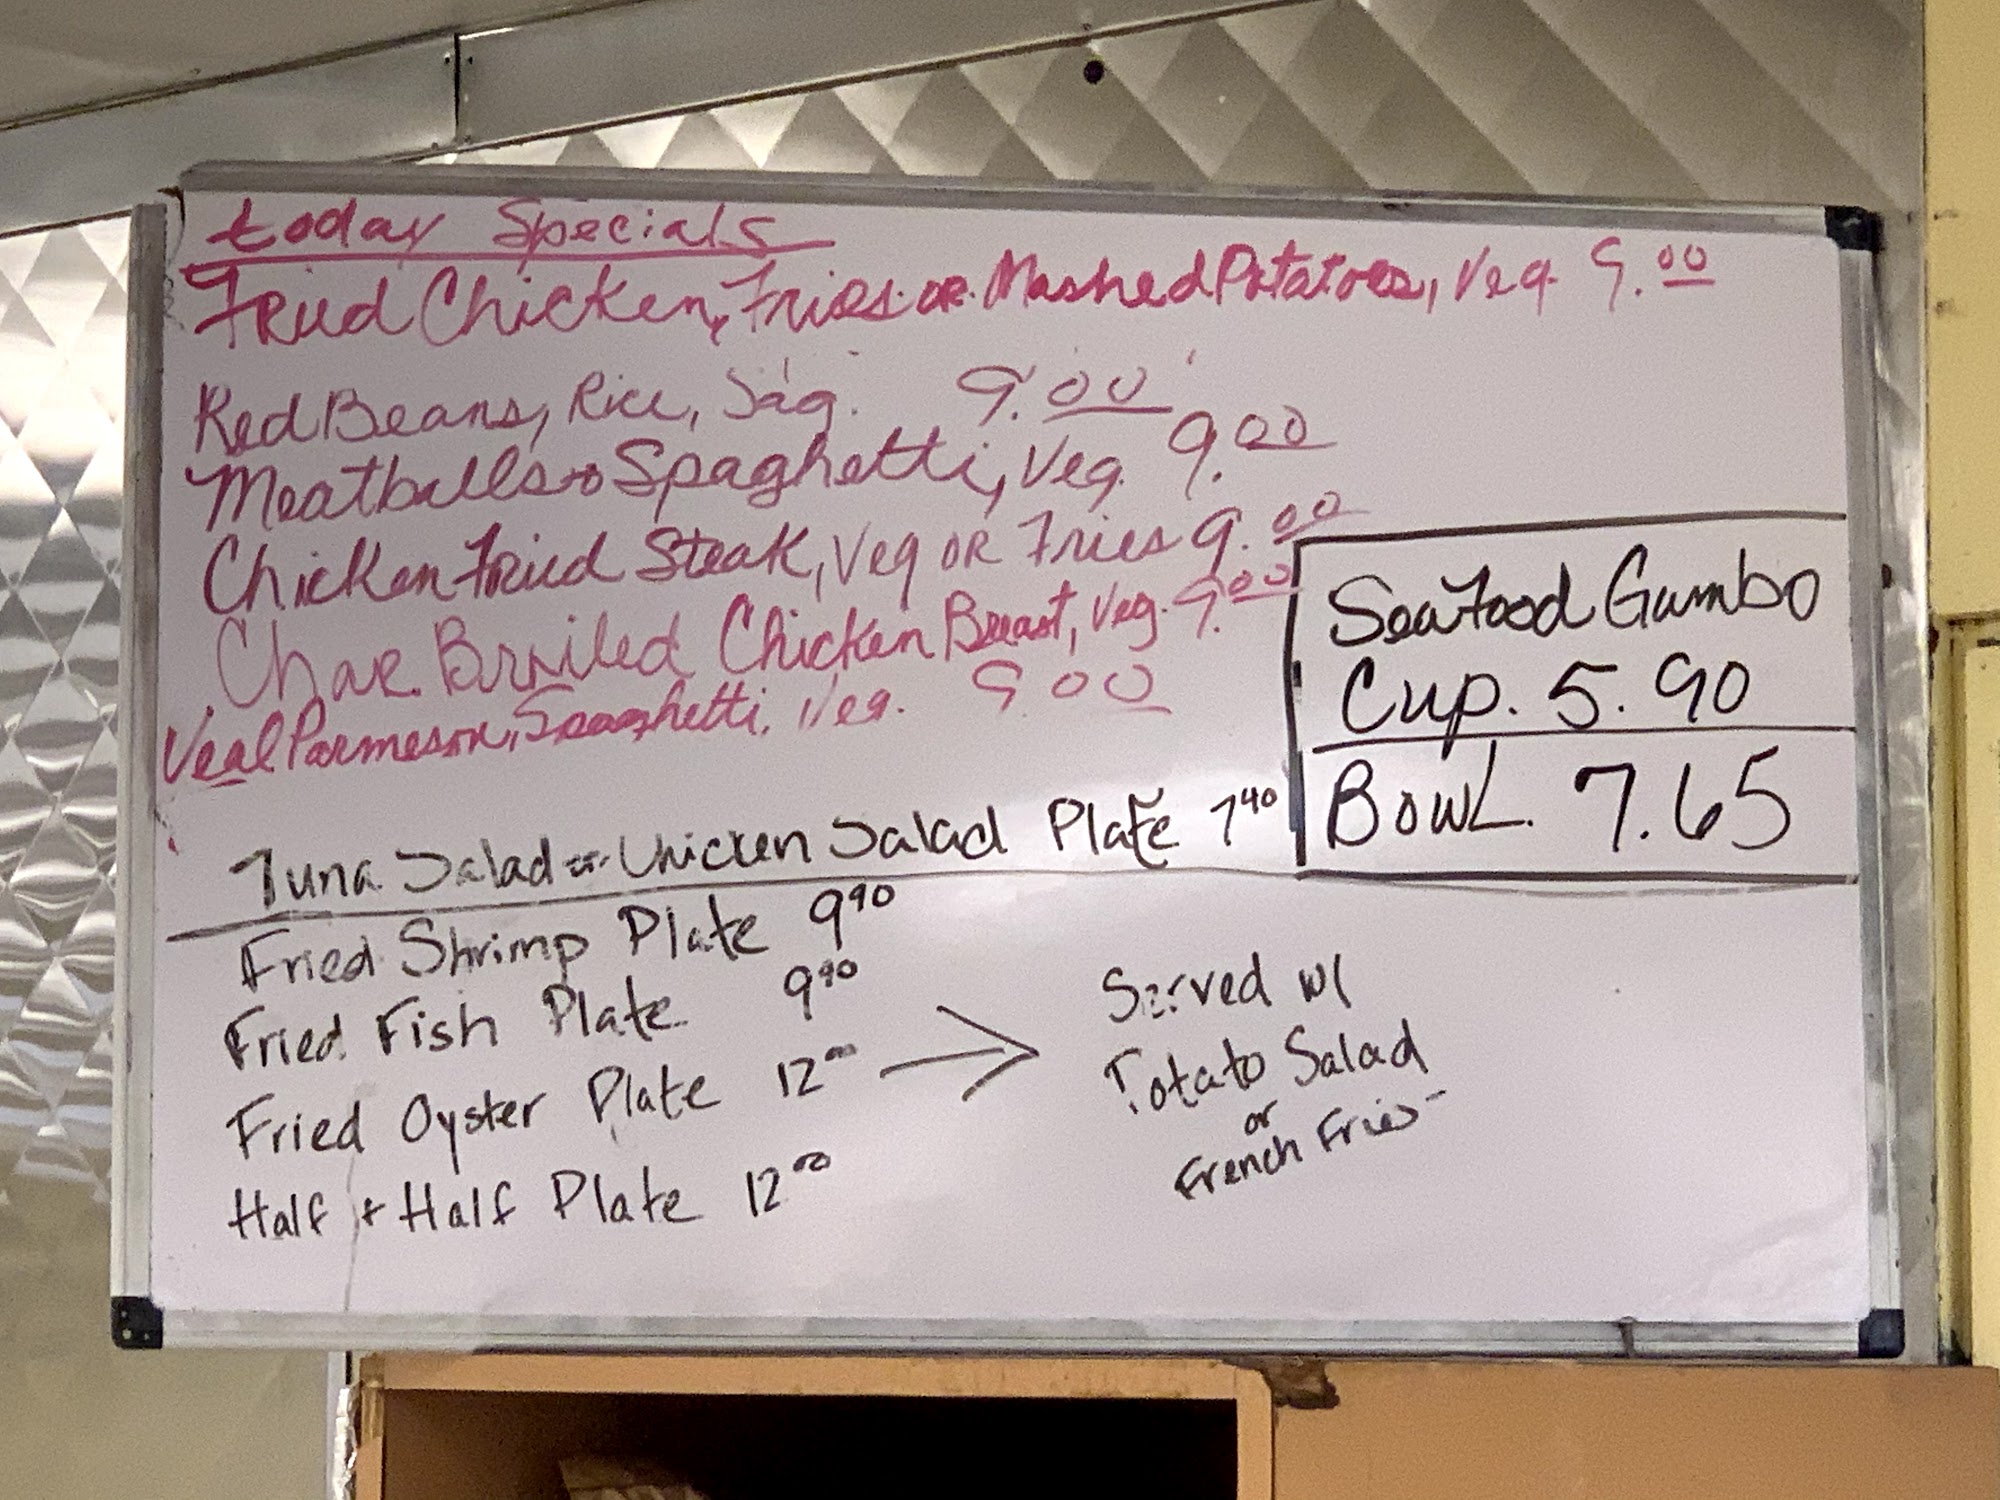 today Specials
Fried Chicken, Fries or Mashed Potatoes, Veg. 9.00
Red Beans, Rice, Sag. 9.00
Meatballs & Spaghetti, Veg. 9.00
Chicken Fried Steak, Veg OR Fries 9.00
Char Broiled Chicken Breast, Veg. 9.00
Veal Parmeson, Spaghetti, Veg. 9.00
Seafood Gumbo
Cup. 5.90
Bowl. 7.65
Tuna Salad or Chicken Salad Plate 7.40
Fried Shrimp Plate 9.90
Fried Fish Plate 9.90
Fried Oyster Plate 12.00
Half + Half Plate 12.00
Served w/
Potato Salad
or
French Fries